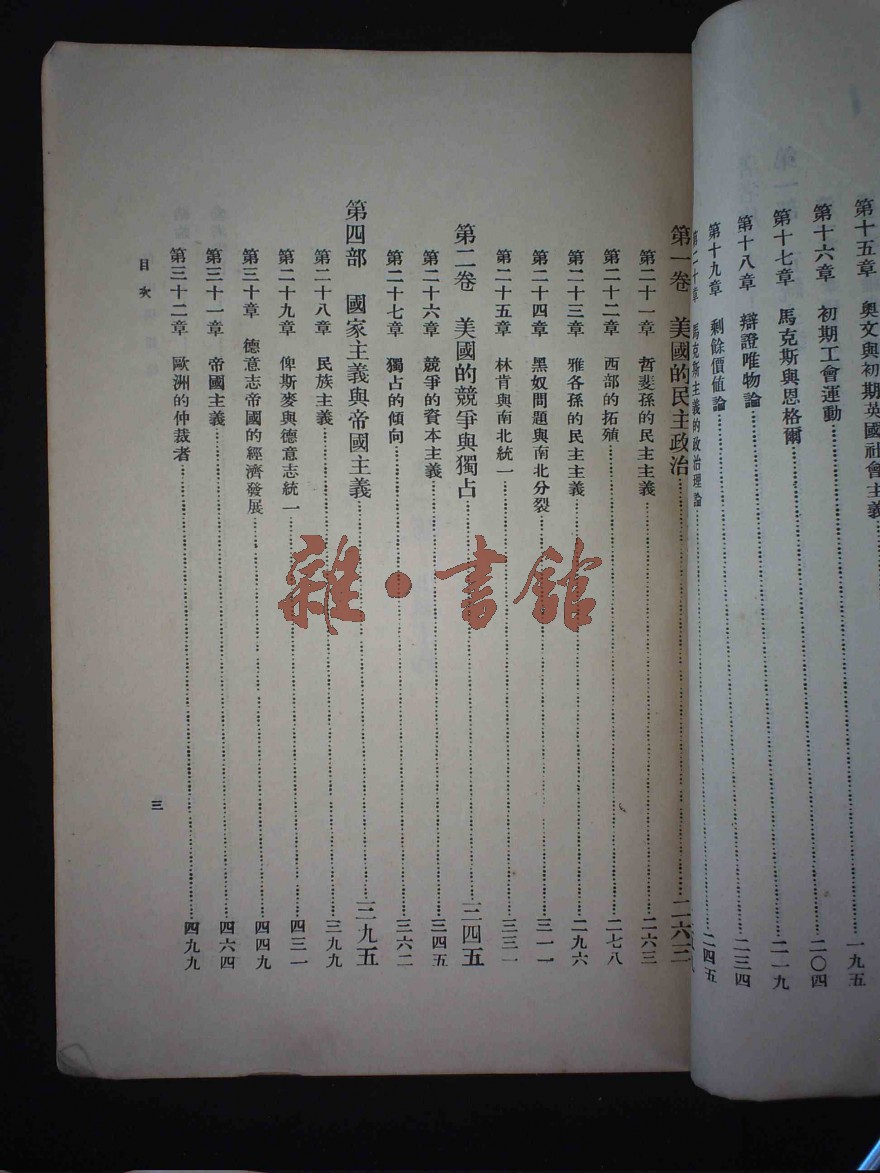 第十五章　奧文與初期英國社會主義……一九五
第十六章　初期工會運動……二〇四
第十七章　馬克斯與恩格爾……二一九
第十八章　辯證唯物論……二三四
第十九章　剩餘價値論……二四五
第二十章　馬克斯主義的政治理論……
第一卷　美國的民主政治……二六三
第二十一章　哲斐孫的民主主義……二六三
第二十二章　西部的拓殖……二七八
第二十三章　雅各孫的民主主義……二九六
第二十四章　黑奴問題與南北分裂……三一一
第二十五章　林肯與南北統一……三三一
第二卷　美國的競爭與獨占……三四五
第二十六章　競爭的資本主義……三四五
第二十七章　獨占的傾向……三六二
第四部　國家主義與帝國主義……三九五
第二十八章　民族主義……三九九
第二十九章　俾斯麥與德意志統一……四三一
第三十章　德意志帝國的經濟發展……四四九
第三十一章　帝國主義……四六四
第三十二章　歐洲的仲裁者……四九九
目次
三
雜·書館